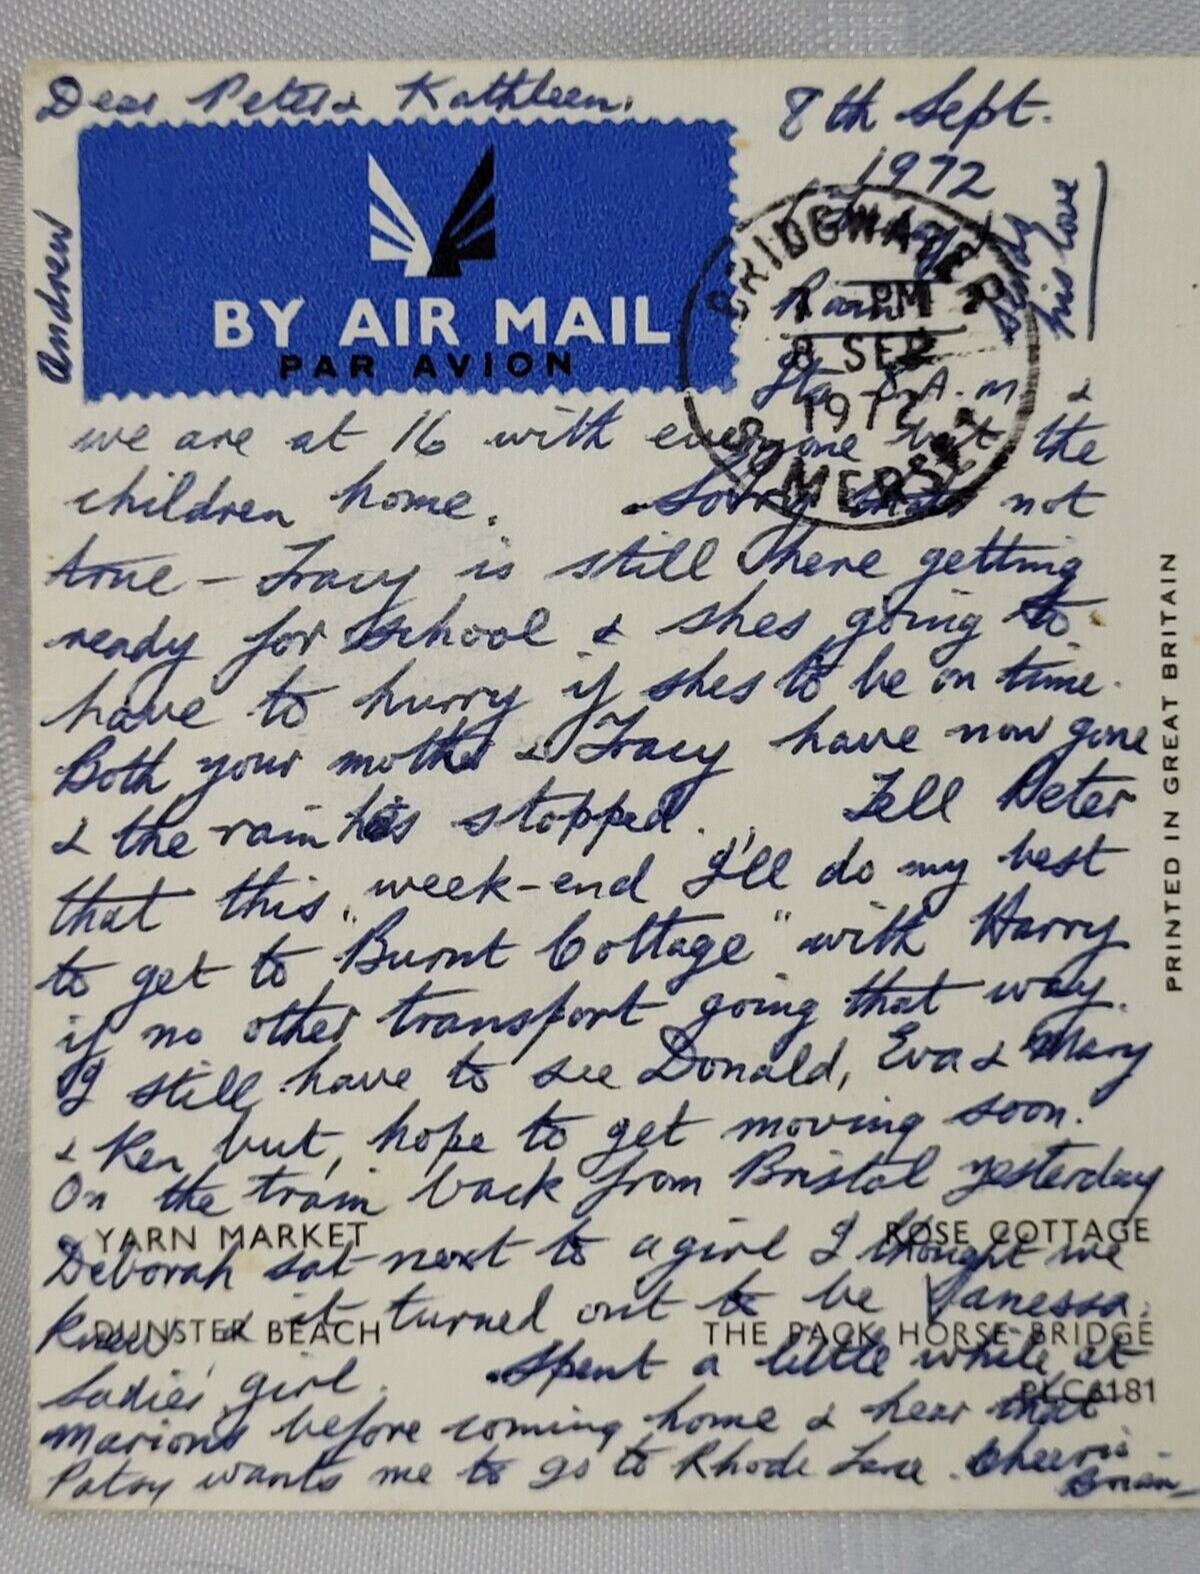 Dear Peter & Kathleen.
8th Sept.
1972
BRIDGWATER
PM
8 SEP
1972
BY AIR MAIL
PAR AVION
Andrew
sends
his love
Rain
Its 8 A.M &
we are at 16 with everyone but the
children home. Sorry thats not
true - Tracy is still here getting
ready for school & shes going to
have to hurry if shes to be on time.
Both your mother & Tracy have now gone
& the rain has stopped. Tell Peter
that this week-end I'll do my best
to get to "Burnt Cottage" with Harry
if no other transport going that way.
I still have to see Donald, Eva & Mary
& Ken but, hope to get moving soon.
On the train back from Bristol yesterday
YARN MARKET ROSE COTTAGE
Deborah sat next to a girl I thought we
knew & it turned out to be Vanessa.
DUNSTER BEACH THE PACK HORSE BRIDGE
Sadies' girl. Spent a little while at
PLC6181
Marions before coming home & hear that
Patsy wants me to go to Rhode Lane. Cheerio -
Brian
PRINTED IN GREAT BRITAIN